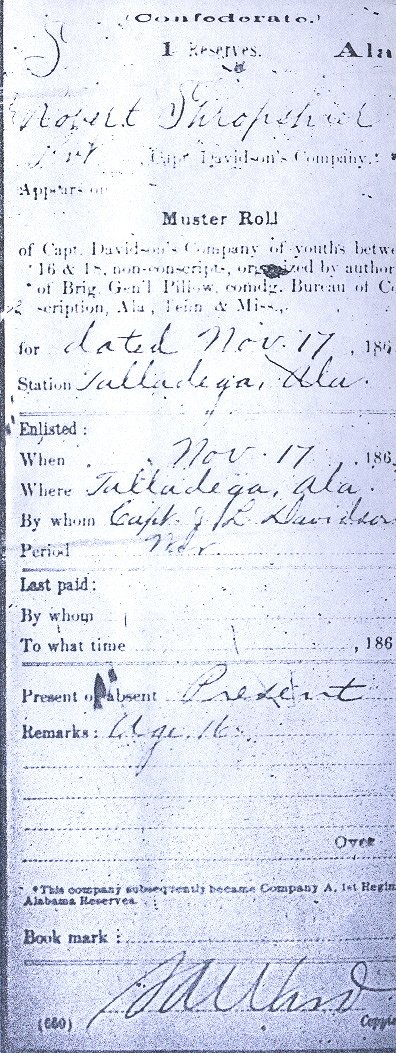 (Confederate.)
S 1 Reserves. Ala
Robert Shropshier
Pvt, Capt. Davidson's Company,*
Appears on
Muster Roll
of Capt. Davidson's Company of youths betwe
16 & 18, non-conscripts, organized by author
of Brig. Gen'l Pillow, comdg. Bureau of Co
scription, Ala, Tenn & Miss.,
for dated Nov. 17, 186
Station Talladega, Ala.
Enlisted:
When Nov. 17, 186
Where Talladega, Ala.
By whom Capt. J. L. Davidson
Period War
Last paid:
By whom
To what time , 186
Present or absent Present
Remarks: Age 16.
Over
*This company subsequently became Company A, 1st Regim
Alabama Reserves.
Book mark:
(650) Copyis